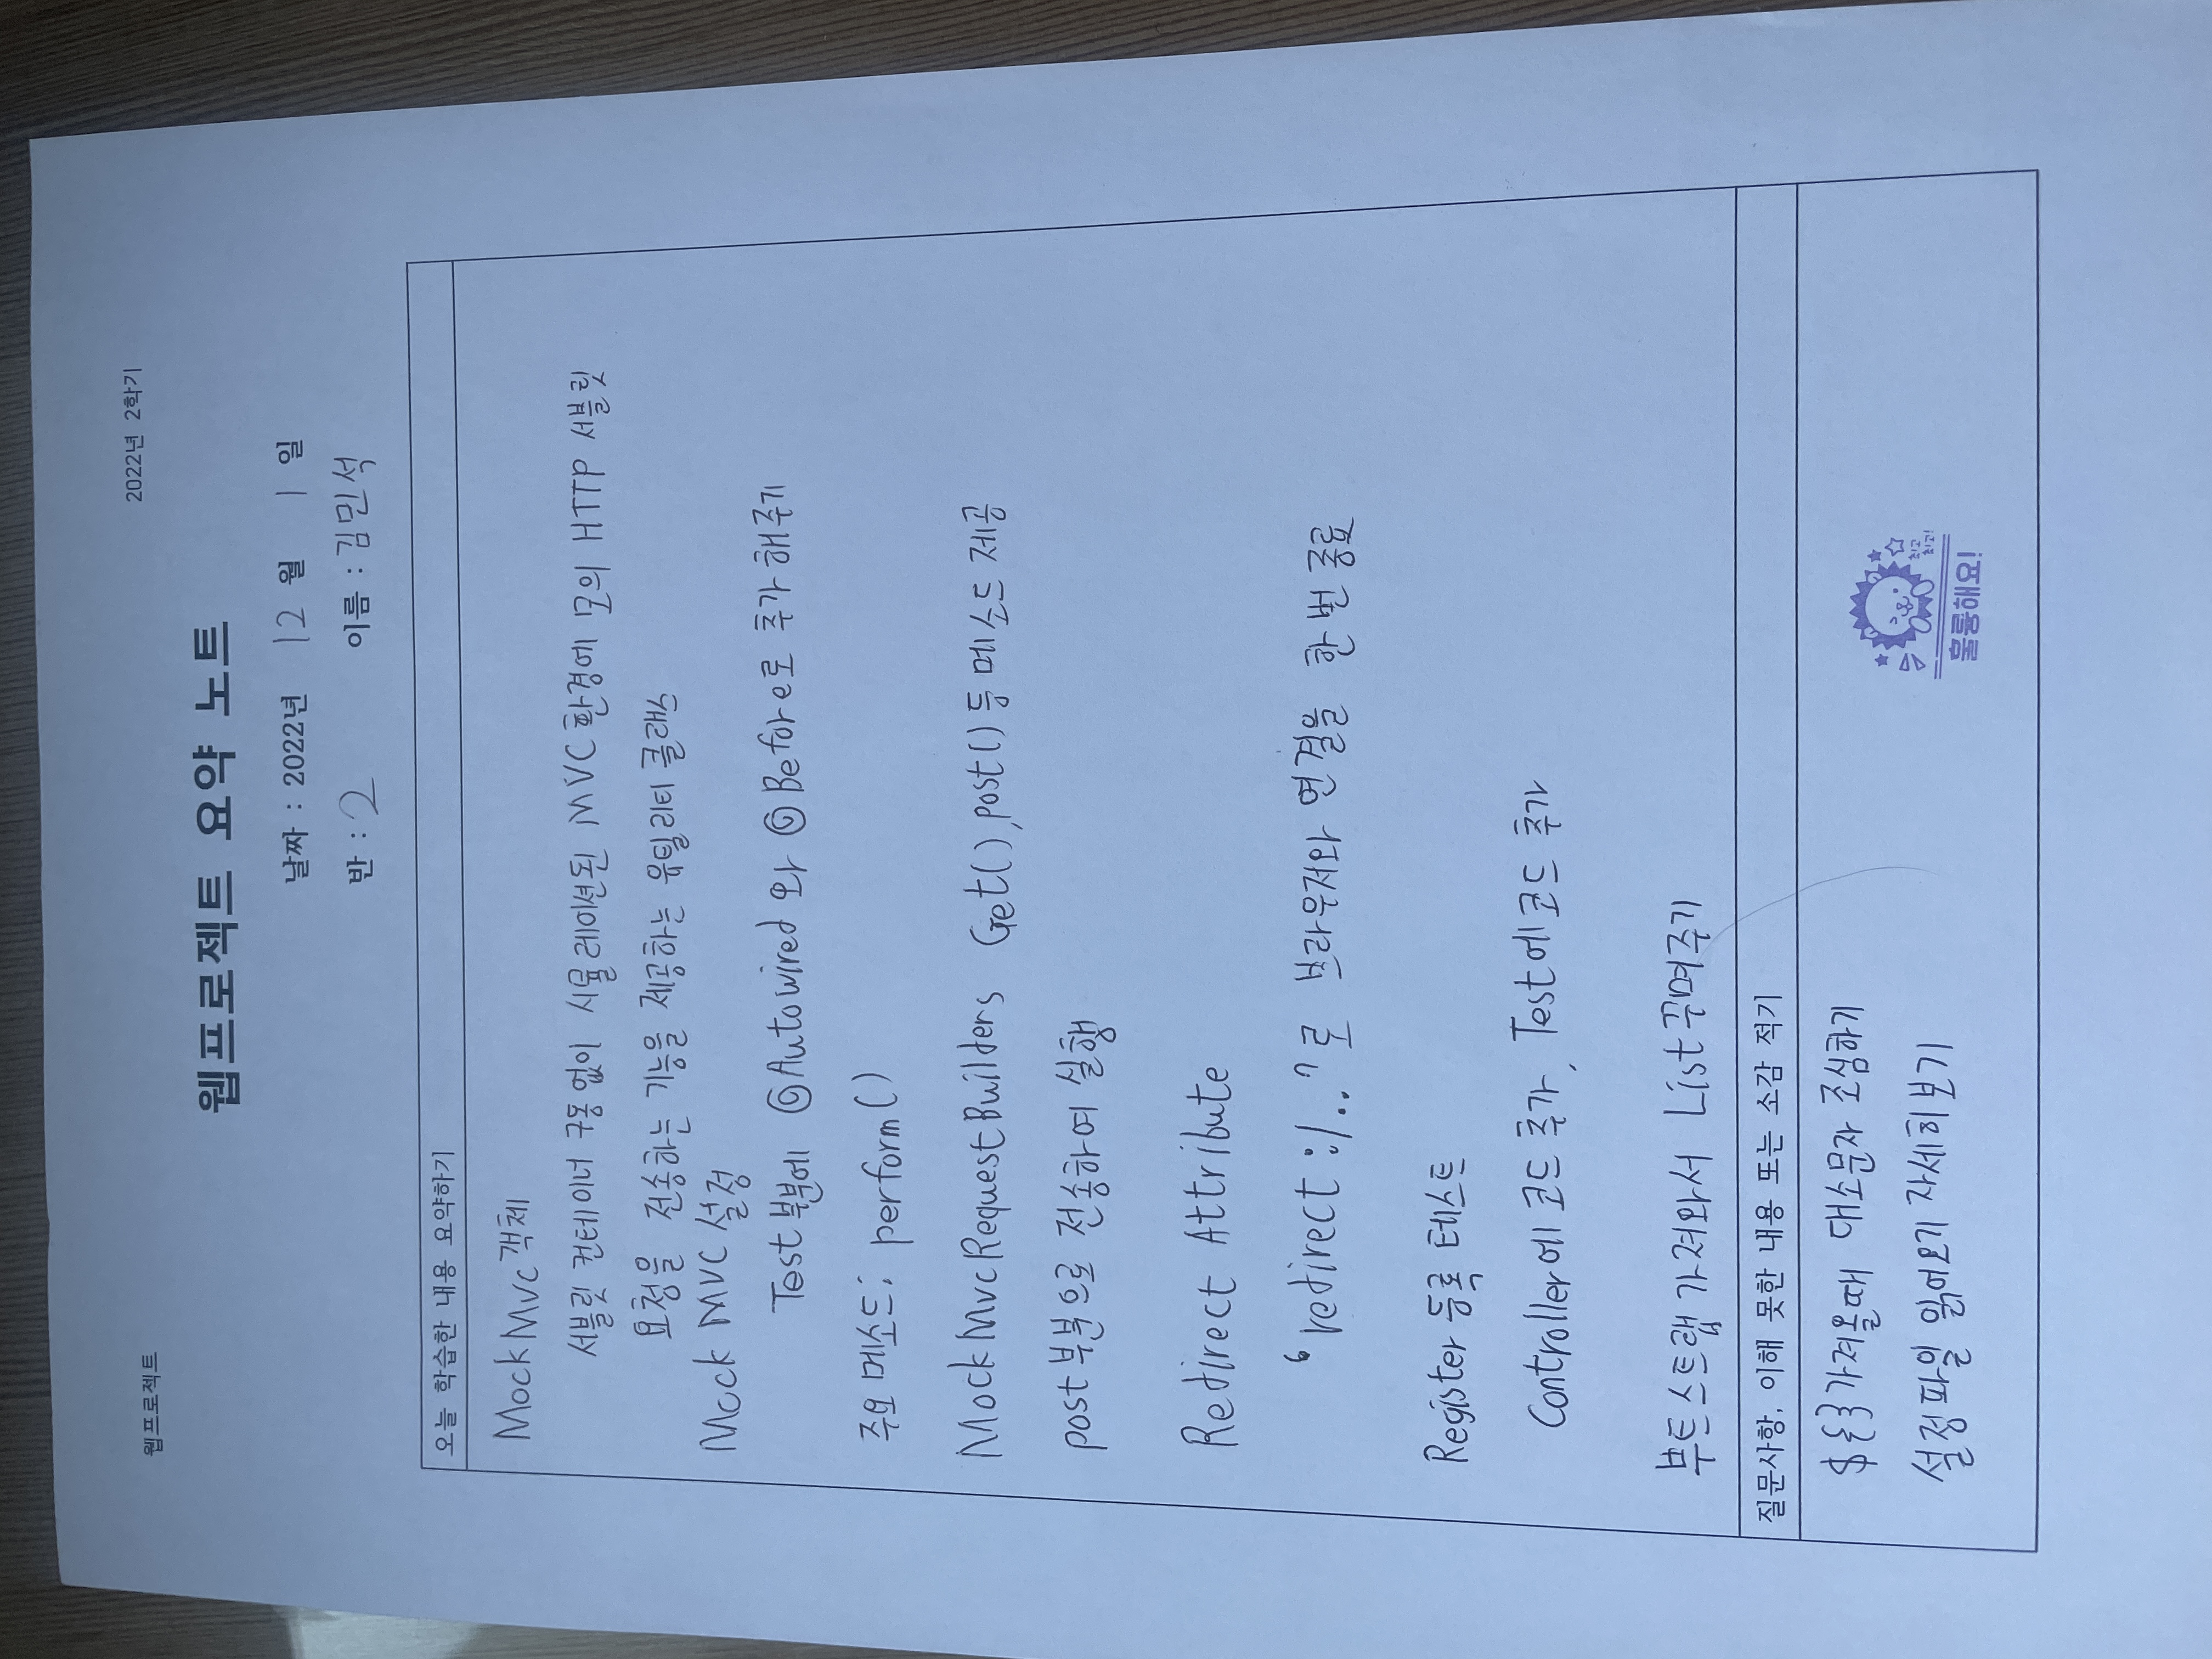 웹프로젝트
2022년 2학기
웹프로젝트 요약 노트
날짜 : 2022년 12 월 1 일
반 : 2 이름 : 김민석
오늘 학습한 내용 요약하기
MockMvc 객체
서블릿 컨테이너 구동 없이 시뮬레이션된 MVC 환경에 모의 HTTP 서블릿
요청을 전송하는 기능을 제공하는 유틸리티 클래스
Mock MVC 설정
Test 부분에 @Autowired 와 @Before로 추가 해주기
주요 메소드: perform()
MockMvcRequestBuilders Get(), post() 등 메소드 제공
post 부분으로 전송하여 실행
Redirect Attribute
'redirect:/..'로 브라우저와 연결을 한 번 종료
Register 등록 테스트
Controller에 코드 추가, Test에 코드 추가
부트스트랩 가져와서 List 꾸며주기
질문사항, 이해 못한 내용 또는 소감 적기
${} 가져올때 대소문자 조심하기
설정파일 읽어오기 자세히 보기
최고
최고!
훌륭해요!